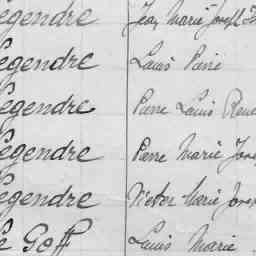 Legendre Jean Marie Joseph
Legendre Louis Pierre
Legendre Pierre Louis René
Legendre Pierre Marie Jose
Legendre Victor Marie Josep
Le Goff Louis Marie